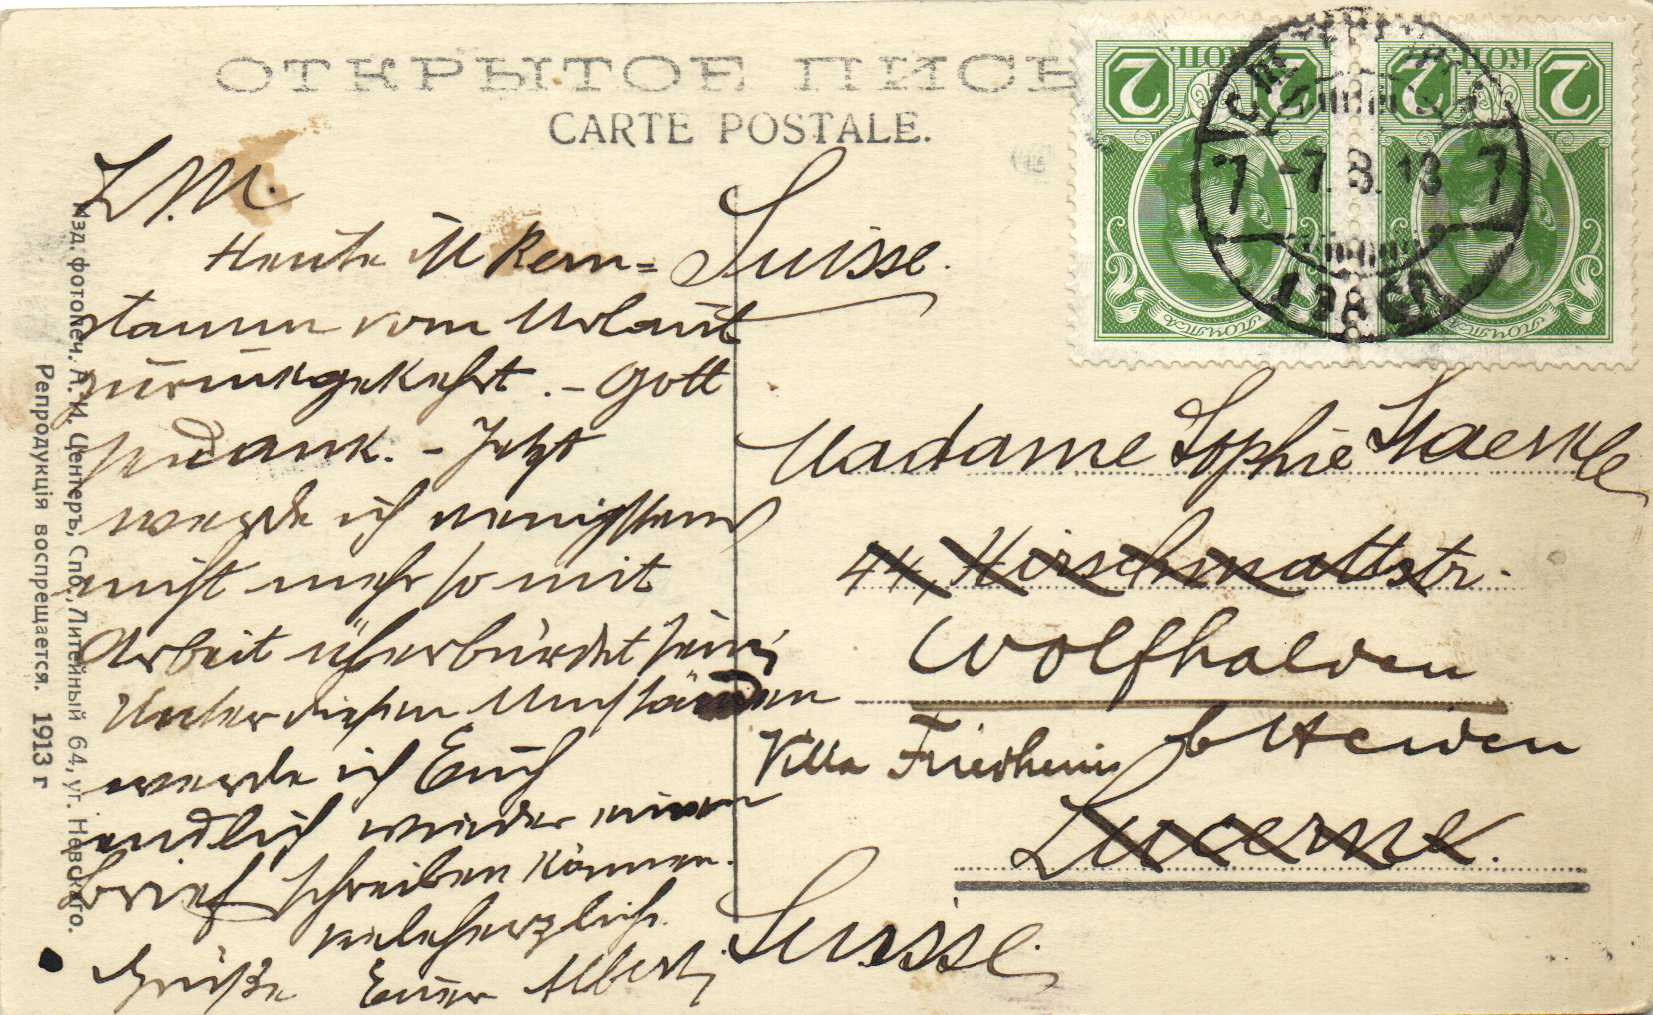 ОТКРЫТОЕ ПИСЬ
CARTE POSTALE.
L. M.
Heute
stamm vom Urlaub
zurückgekehrt. – Gott
sei dank. – Jetzt
werde ich wenigstens
nicht mehr so mit
Arbeit überbürdet sein;
Unter diesen Umständen
werde ich Euch
endlich wieder einen
brief schreiben können.
viele herzliche
Grüße Euer Albert.
Изд. фотопеч. А. И. Центеръ, Спб., Литейный 64, уг. Невскаго.
Репродукція воспрещается. 1913 г
2 КОП. 2
2 КОП. 2
ПОЧТА
ПОЧТА
7 -7. 8. 13 7
Suisse.
Madame Sophie Staerkle
44, Hirschmattstr.
Wolfhalden
Villa Friedheim b Heiden
Lucerne.
Suisse.